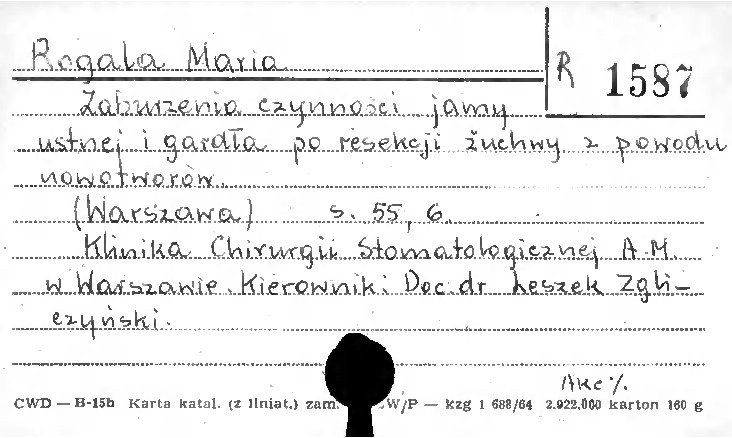 Rogala Maria
R 1587
Zaburzenia czynności jamy
ustnej i gardła po resekcji żuchwy z powodu
nowotworów.
(Warszawa) s. 55, 6.
Klinika Chirurgii Stomatologicznej A.M.
w Warszawie. Kierownik: Doc. dr Leszek Zgli-
czyński.
Akc %.
CWD — B-15b Karta katal. (z liniat.) zam. W/P — kzg 1 688/64 2.922.000 karton 160 g